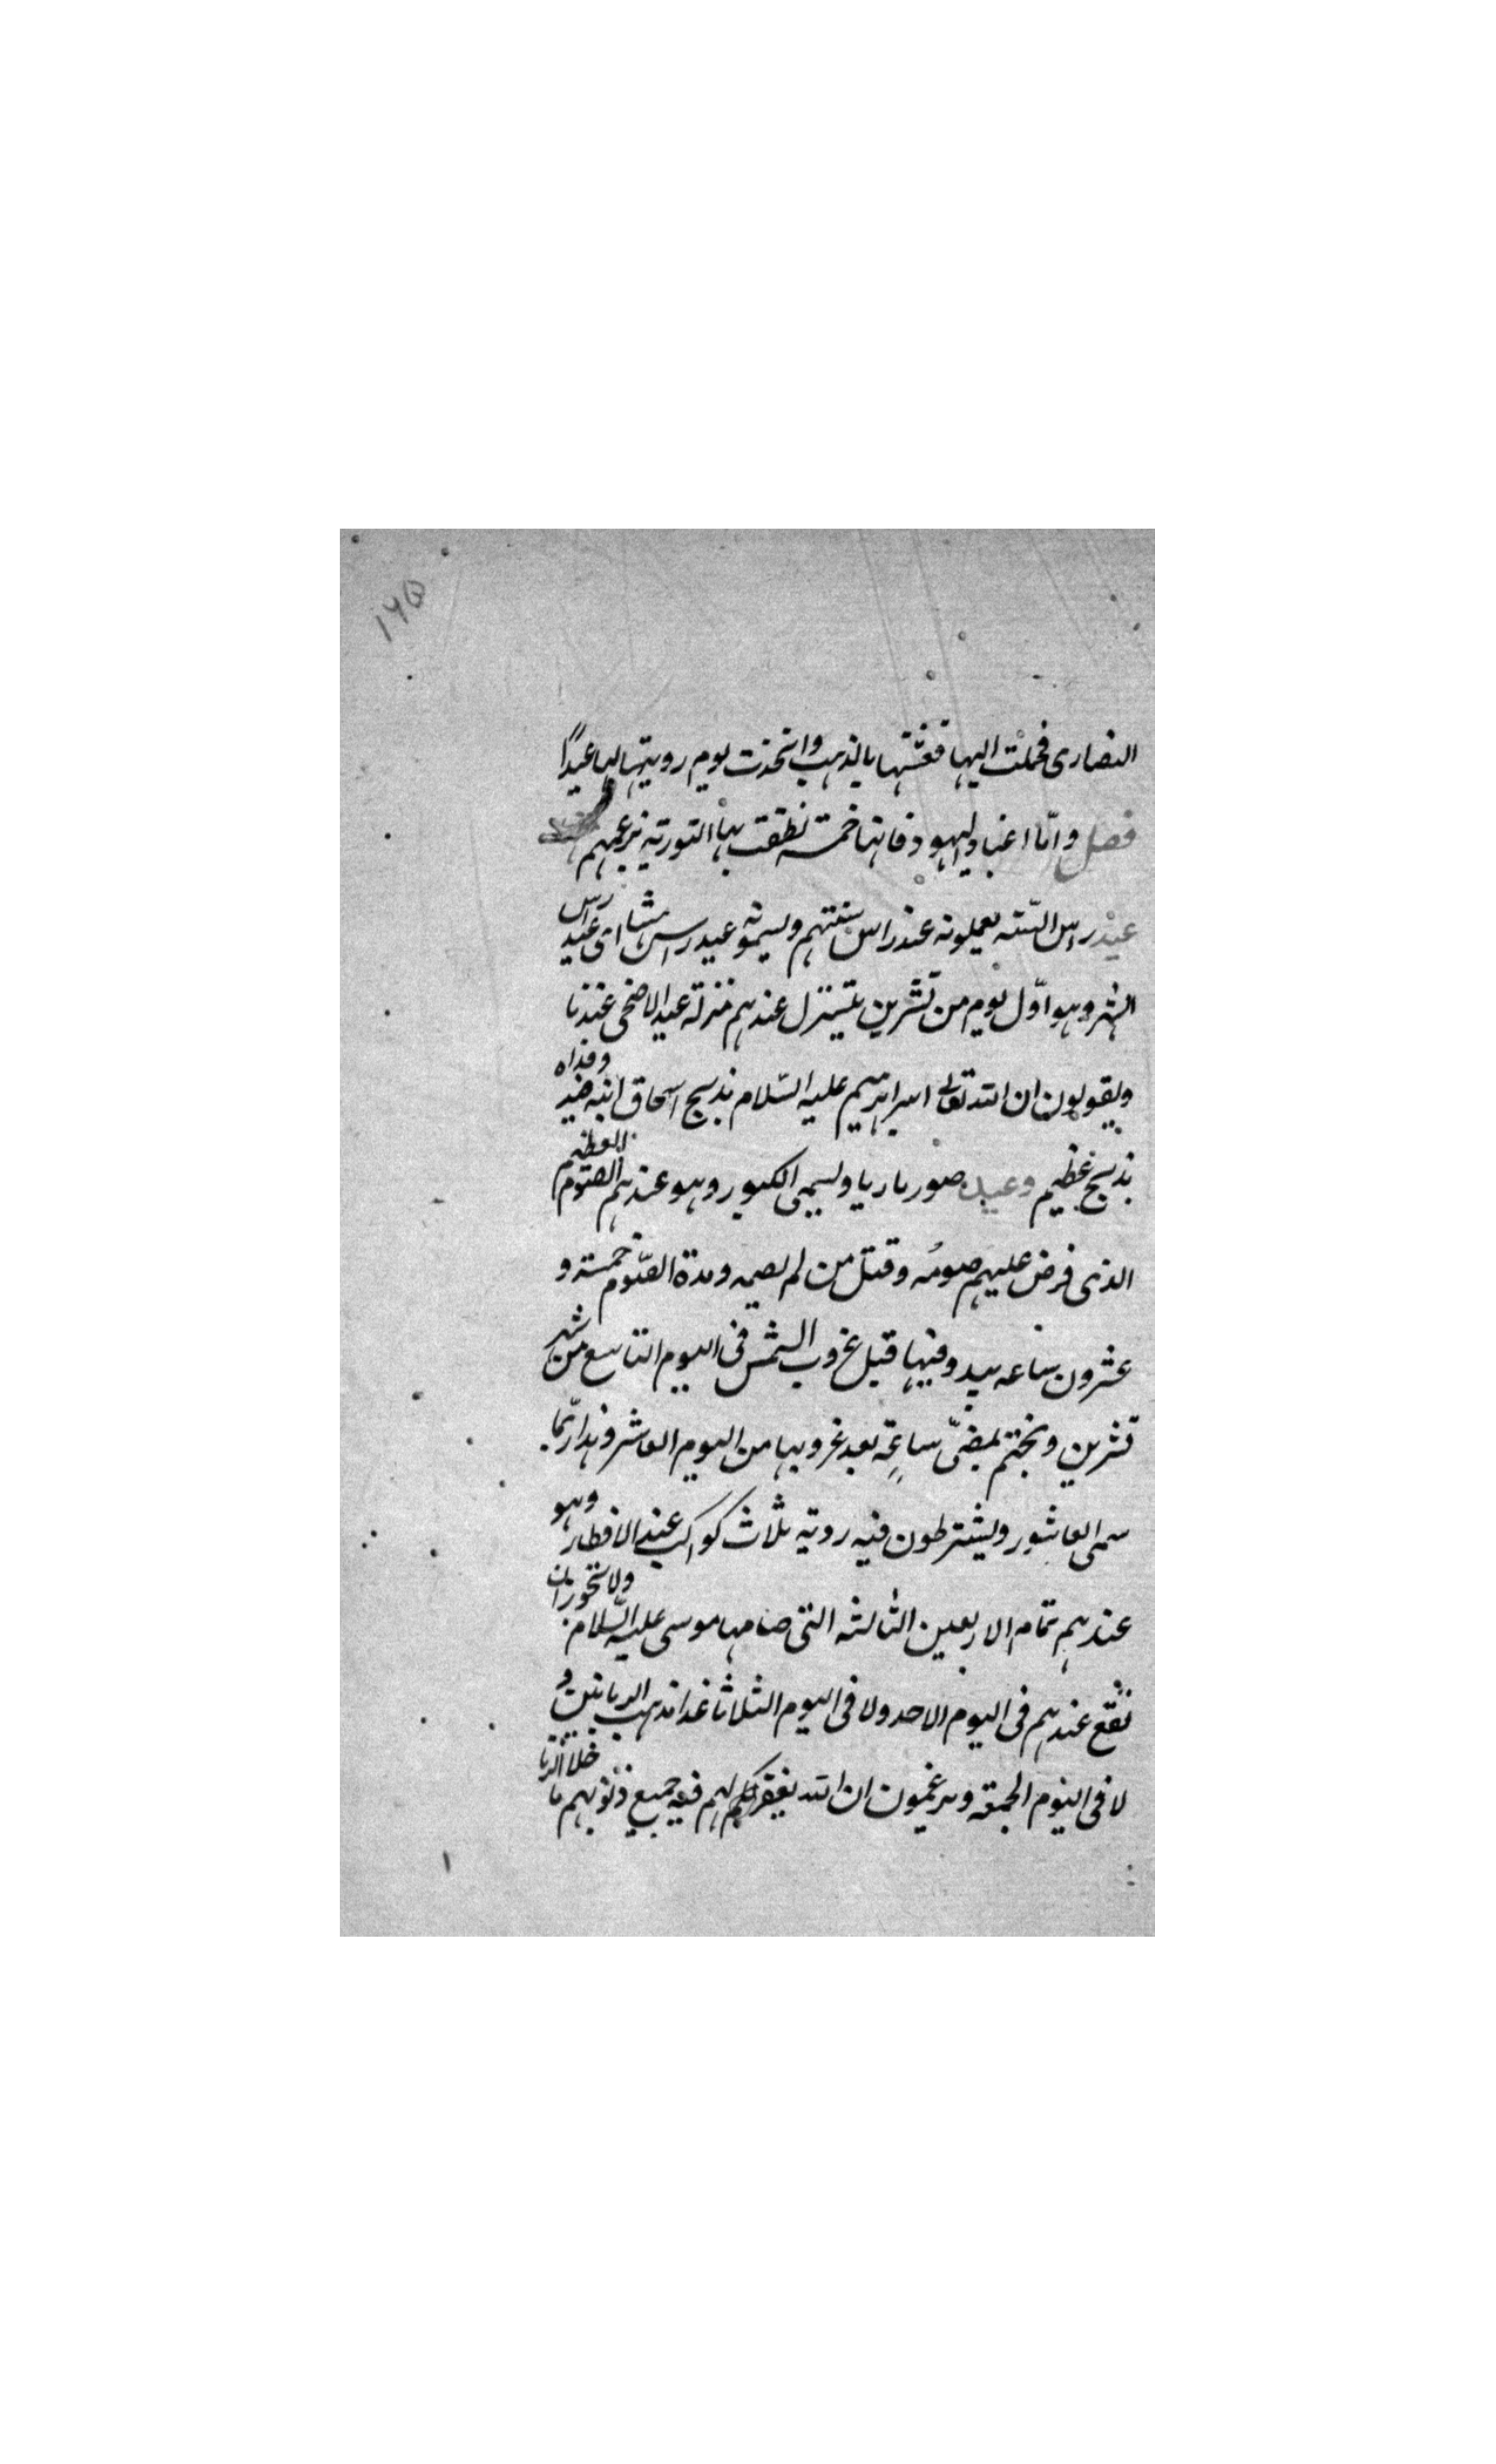 ١٦٥
النصارى فحملت اليها فغشتها بالذهب واتخذت يوم رويتها لها عيدًا
فصل وامّا اعياد اليهود فانها خمسة نطقت بها التورية بزعمهم
عيد راس السّنه يعملونه عند راس سنتهم ويسمونه عيد راس هشا اى عيد راس
الشهر وهو اوّل يوم من تشرين يتنزل عندهم منزلة عيد الاضحى عندنا
ويقولون ان الله تعالى امر ابرهيم عليه السّلام بذبح اسحاق ابنه فيه وفداه
بذبح عظيم وعيد صوماريا ويسمى الكبور وهو عندهم الصّوم العظيم
الذى فرض عليهم صومه وقتل من لم يصمه ومدة الصّوم خمسة و
عشرون ساعه يبدو فيها قبل غروب الشمس فى اليوم التاسع من شهر
تشرين ويختم بمضىّ ساعة بعد غروبها من اليوم العاشر وبها ربّما
سمى العاشور ويشترطون فيه روية ثلاث كواكب عند الافطار وهو
عندهم تمام الاربعين الثالثه التى صامها موسى عليه السّلام ولا يجوز ان
تقع عندهم فى اليوم الاحد ولا فى اليوم الثلاثا عدا مذهب الربانيين و
لا فى اليوم الجمعة ويزعمون ان الله يغفر لهم فيه جميع ذنوبهم ما خلا الزنا